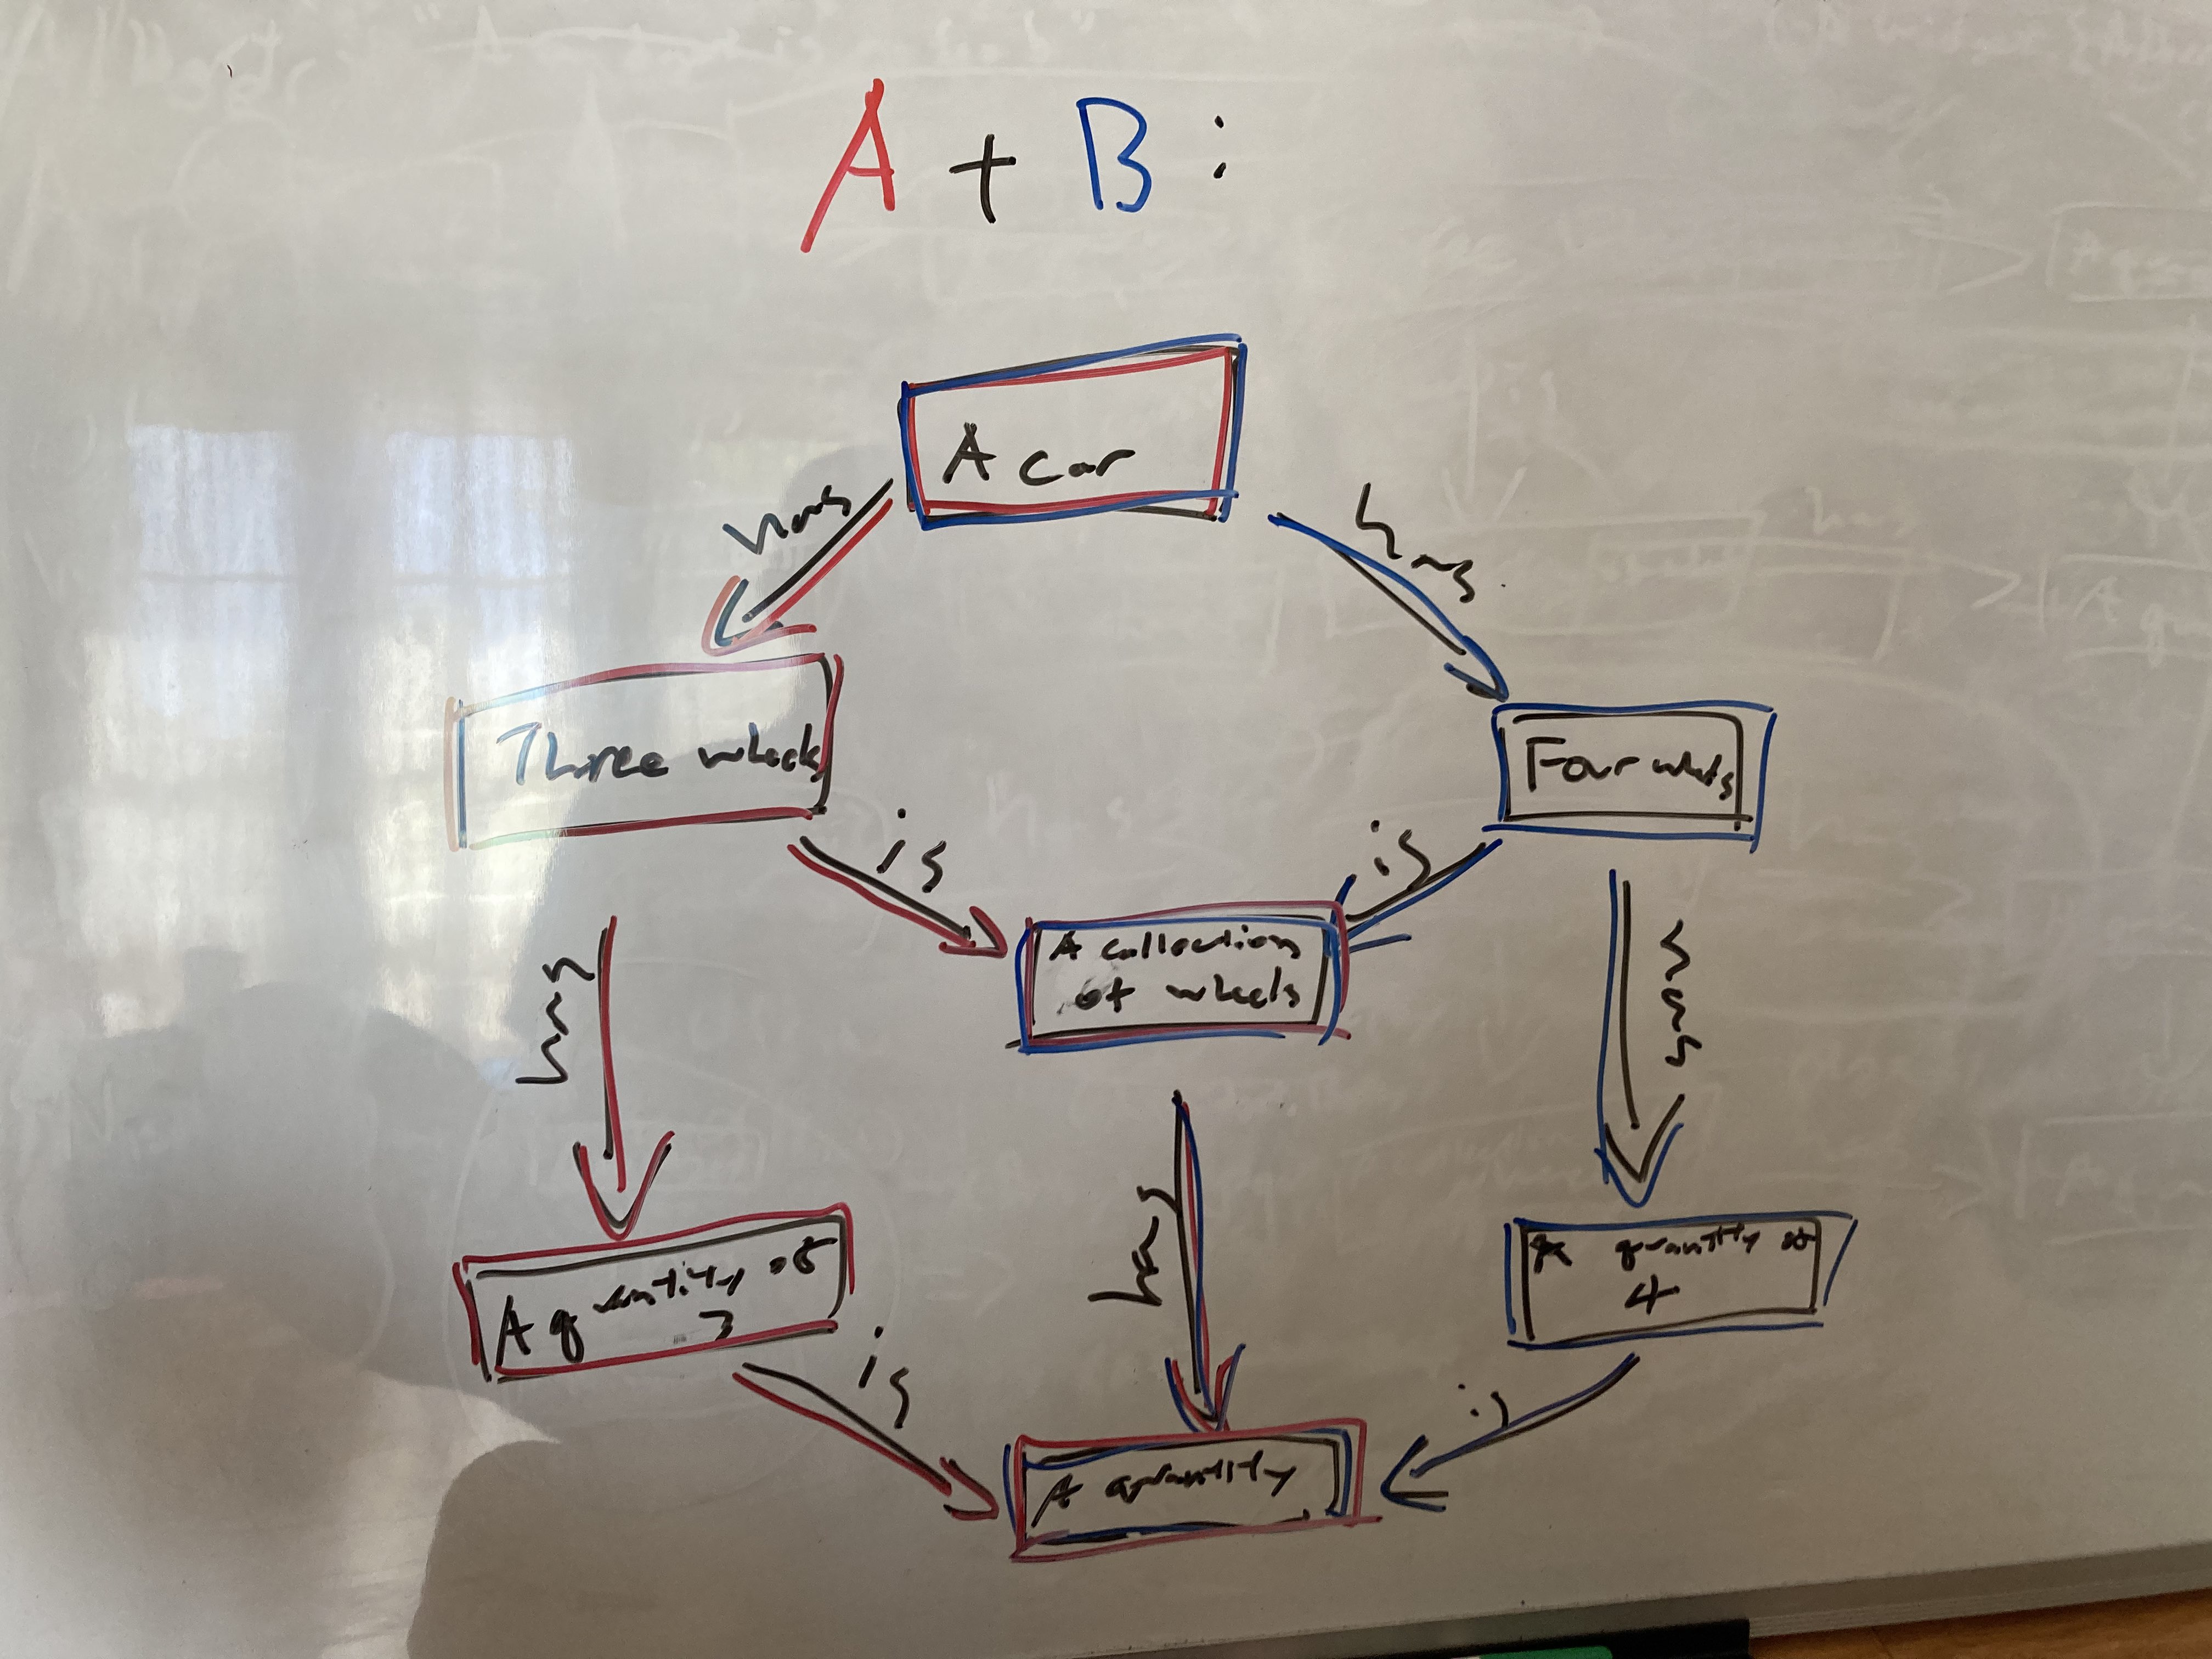 A + B :
A car
has
has
Three wheels
Four wheels
is
is
A collection
of wheels
has
has
has
A quantity of
3
A quantity of
4
is
is
A quantity